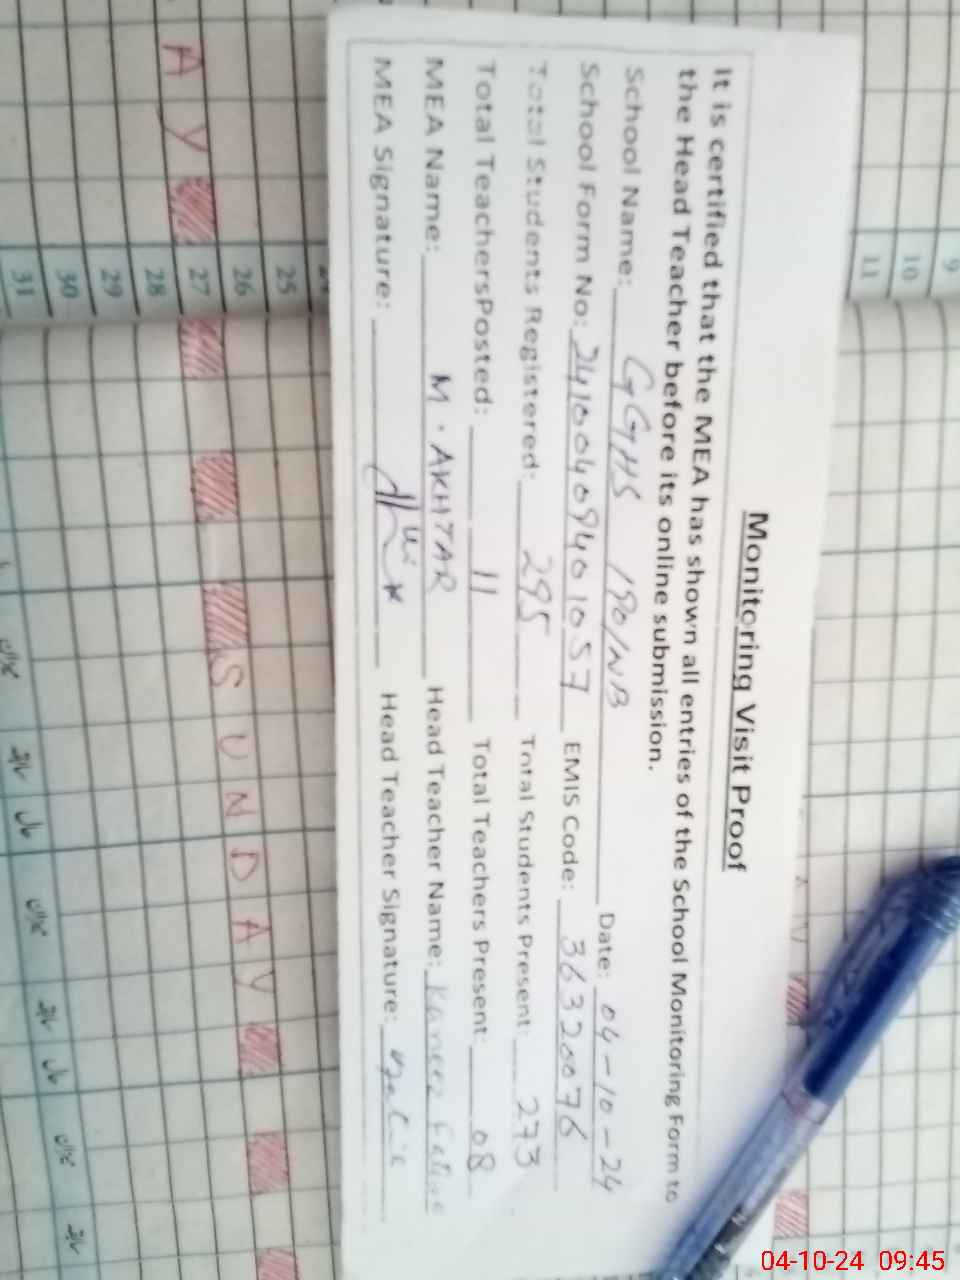 Monitoring Visit Proof
It is certified that the MEA has shown all entries of the School Monitoring Form to
the Head Teacher before its online submission.
School Name: GGHS 190/NB Date: 04-10-24
School Form No: 24100409401057 EMIS Code: 36320076
Total Students Registered: 295 Total Students Present: 273
Total TeachersPosted: 11 Total Teachers Present: 08
MEA Name: M. AKHTAR Head Teacher Name: Kaneez
MEA Signature: Head Teacher Signature:
9
10
11
25
26
27
28
29
30
31
A Y
SUNDAY
04-10-24 09:45